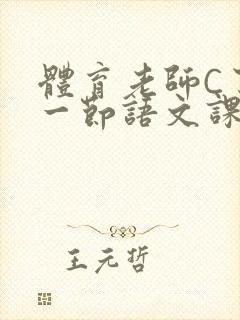 體育老師C
一節語文課
王元哲